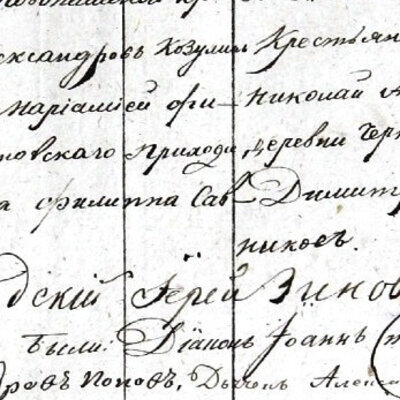 ександровъ Козулинъ Крестьян
Маріамией Фи- Николай А
повскаго прихода, деревни Чер
а Филиппа Сав Димитр
никовъ.
дскій Іерей Зинов
Были: Діаконъ Іоаннъ
ровъ Поповъ, Дьячокъ Алекс